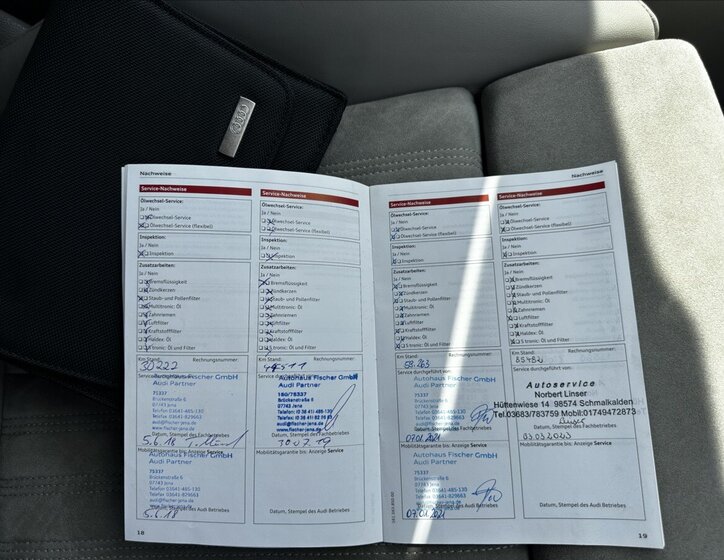 Nachweise
Service-Nachweise
Ölwechsel-Service:
Ja / Nein
Ölwechsel-Service
Ölwechsel-Service (flexibel)
Inspektion:
Ja / Nein
Inspektion
Zusatzarbeiten:
Ja / Nein
Bremsflüssigkeit
Zündkerzen
Staub- und Pollenfilter
Multitronic: Öl
Zahnriemen
Luftfilter
Kraftstofffilter
Haldex: Öl
S tronic: Öl und Filter
Km Stand: Rechnungsnummer:
30222
Service durchgeführt von:
Autohaus Fischer GmbH
Audi Partner
75337
Brückenstraße 6
07743 Jena
Telefon 03641-485-130
Telefax 03641-829663
audi@fischer-jena.de
www.fischer-jena.de
Datum, Stempel des Fachbetriebes
5.6.18
Mobilitätsgarantie bis: Anzeige Service
Autohaus Fischer GmbH
Audi Partner
75337
Brückenstraße 6
07743 Jena
Telefon 03641-485-130
Telefax 03641-829663
audi@fischer-jena.de
www.fischer-jena.de
Datum, Stempel des Audi Betriebes
5.6.18
18
Service-Nachweise
Ölwechsel-Service:
Ja / Nein
Ölwechsel-Service
Ölwechsel-Service (flexibel)
Inspektion:
Ja / Nein
Inspektion
Zusatzarbeiten:
Ja / Nein
Bremsflüssigkeit
Zündkerzen
Staub- und Pollenfilter
Multitronic: Öl
Zahnriemen
Luftfilter
Kraftstofffilter
Haldex: Öl
S tronic: Öl und Filter
Km Stand: Rechnungsnummer:
Autohaus Fischer GmbH
Audi Partner
Brückenstraße 6
07743 Jena
audi@fischer-jena.de
www.fischer-jena.de
Datum, Stempel des Fachbetriebes
Mobilitätsgarantie bis: Anzeige Service
Datum, Stempel des Audi Betriebes
Service-Nachweise
Ölwechsel-Service:
Ja / Nein
Ölwechsel-Service
Ölwechsel-Service (flexibel)
Inspektion:
Ja / Nein
Inspektion
Zusatzarbeiten:
Ja / Nein
Bremsflüssigkeit
Zündkerzen
Staub- und Pollenfilter
Multitronic: Öl
Zahnriemen
Luftfilter
Kraftstofffilter
Haldex: Öl
S tronic: Öl und Filter
Km Stand: Rechnungsnummer:
Service durchgeführt von:
Autohaus Fischer GmbH
Audi Partner
75337
Brückenstraße 6
07743 Jena
Telefon 03641-485-130
Telefax 03641-829663
audi@fischer-jena.de
www.fischer-jena.de
Datum, Stempel des Fachbetriebes
07.01.2021
Mobilitätsgarantie bis: Anzeige Service
Autohaus Fischer GmbH
Audi Partner
75337
Brückenstraße 6
07743 Jena
Telefon 03641-485-130
Telefax 03641-829663
audi@fischer-jena.de
www.fischer-jena.de
Datum, Stempel des Audi Betriebes
07.01.2021
Nachweise
Service-Nachweise
Ölwechsel-Service:
Ja / Nein
Ölwechsel-Service
Ölwechsel-Service (flexibel)
Inspektion:
Ja / Nein
Inspektion
Zusatzarbeiten:
Ja / Nein
Bremsflüssigkeit
Zündkerzen
Staub- und Pollenfilter
Multitronic: Öl
Zahnriemen
Luftfilter
Kraftstofffilter
Haldex: Öl
S tronic: Öl und Filter
Km Stand: Rechnungsnummer:
Service durchgeführt von:
Autoservice
Norbert Linser
Hüttenwiese 14 98574 Schmalkalden
Tel.03683/783759 Mobil:01749472873
Datum, Stempel des Fachbetriebes
Mobilitätsgarantie bis: Anzeige Service
Datum, Stempel des Audi Betriebes
19